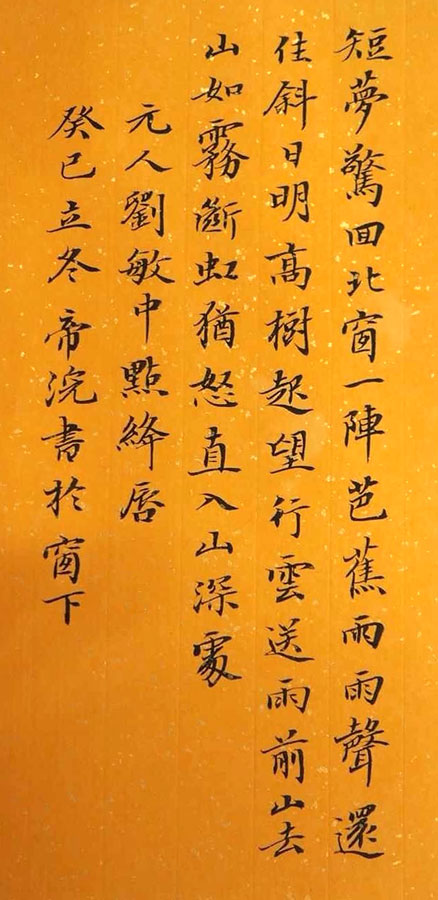 短夢驚回北窗一陣芭蕉雨雨聲還
住斜日明高樹起望行雲送雨前山去
山如霧斷虹猶怒直入山深處
元人劉敏中點絳唇
癸巳立冬帝浣書於窗下